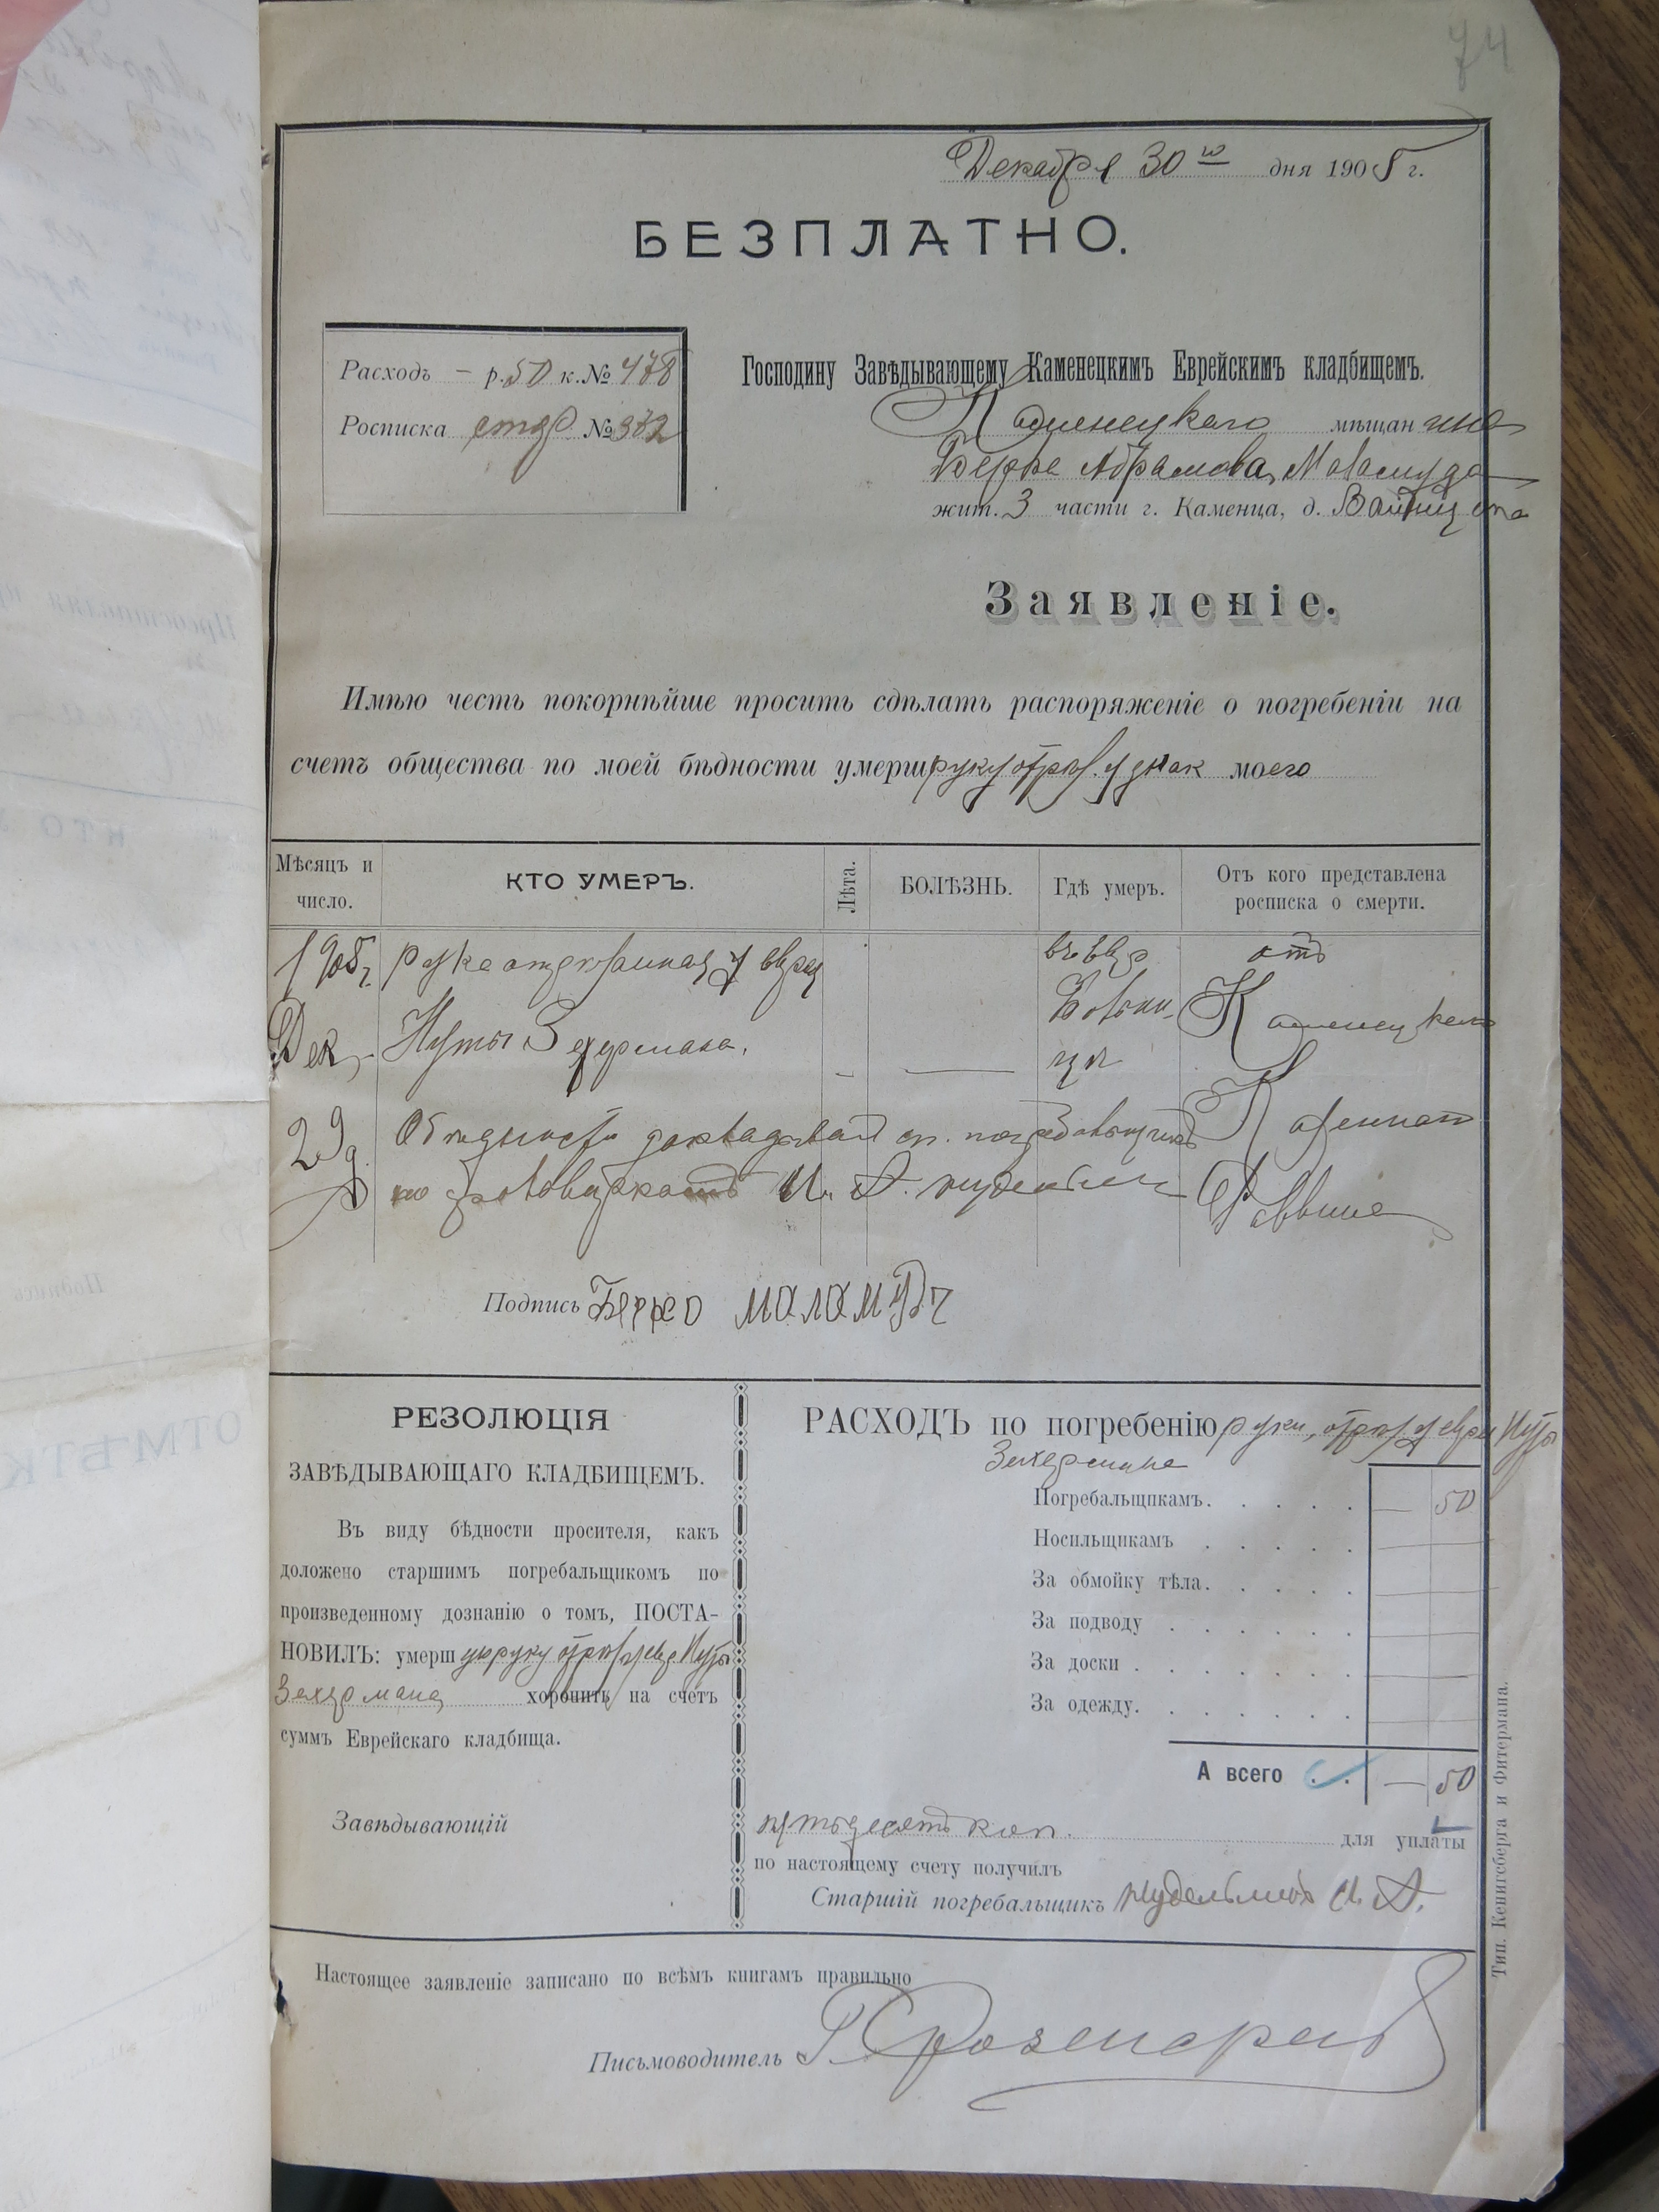 74
Декабря 30го дня 1905 г.
БЕЗПЛАТНО.
Расходъ — р. 50 к. № 478
Росписка № 372
Господину Завѣдывающему Каменецкимъ Еврейскимъ кладбищемъ.
Каменецкаго мѣщанина
Берко Абрамова Маламуда
жит. 3 части г. Каменца, д.
Заявленіе.
Имѣю честь покорнѣйше просить сдѣлать распоряженіе о погребеніи на
счетъ общества по моей бѣдности умерш руку моего
Мѣсяцъ и число.
КТО УМЕРЪ.
Лѣта.
БОЛѢЗНЬ.
Гдѣ умеръ.
Отъ кого представлена росписка о смерти.
1905 г. рука у евреи отъ
Дек. Нуты Зехермана. Каменецкаго
29 д. О бѣдности докладывалъ Казеннаго
И. А. Нудельманъ Раввина
Подпись Берко маламудъ
РЕЗОЛЮЦІЯ
ЗАВѢДЫВАЮЩАГО КЛАДБИЩЕМЪ.
Въ виду бѣдности просителя, какъ
доложено старшимъ погребальщикомъ по
произведенному дознанію о томъ, ПОСТА-
НОВИЛЪ: умерш руку Нуты
Зехермана хоронить на счетъ
суммъ Еврейскаго кладбища.
Завѣдывающій
РАСХОДЪ по погребенію руки, Нуты
Зехермана
Погребальщикамъ. — 50
Носильщикамъ
За обмойку тѣла.
За подводу
За доски
За одежду.
А всего — 50
пятьдесятъ коп. для уплаты
по настоящему счету получилъ
Старшій погребальщикъ Нудельманъ И. А.
Настоящее заявленіе записано по всѣмъ книгамъ правильно
Письмоводитель
Тип. Кенигсберга и Фитермана.